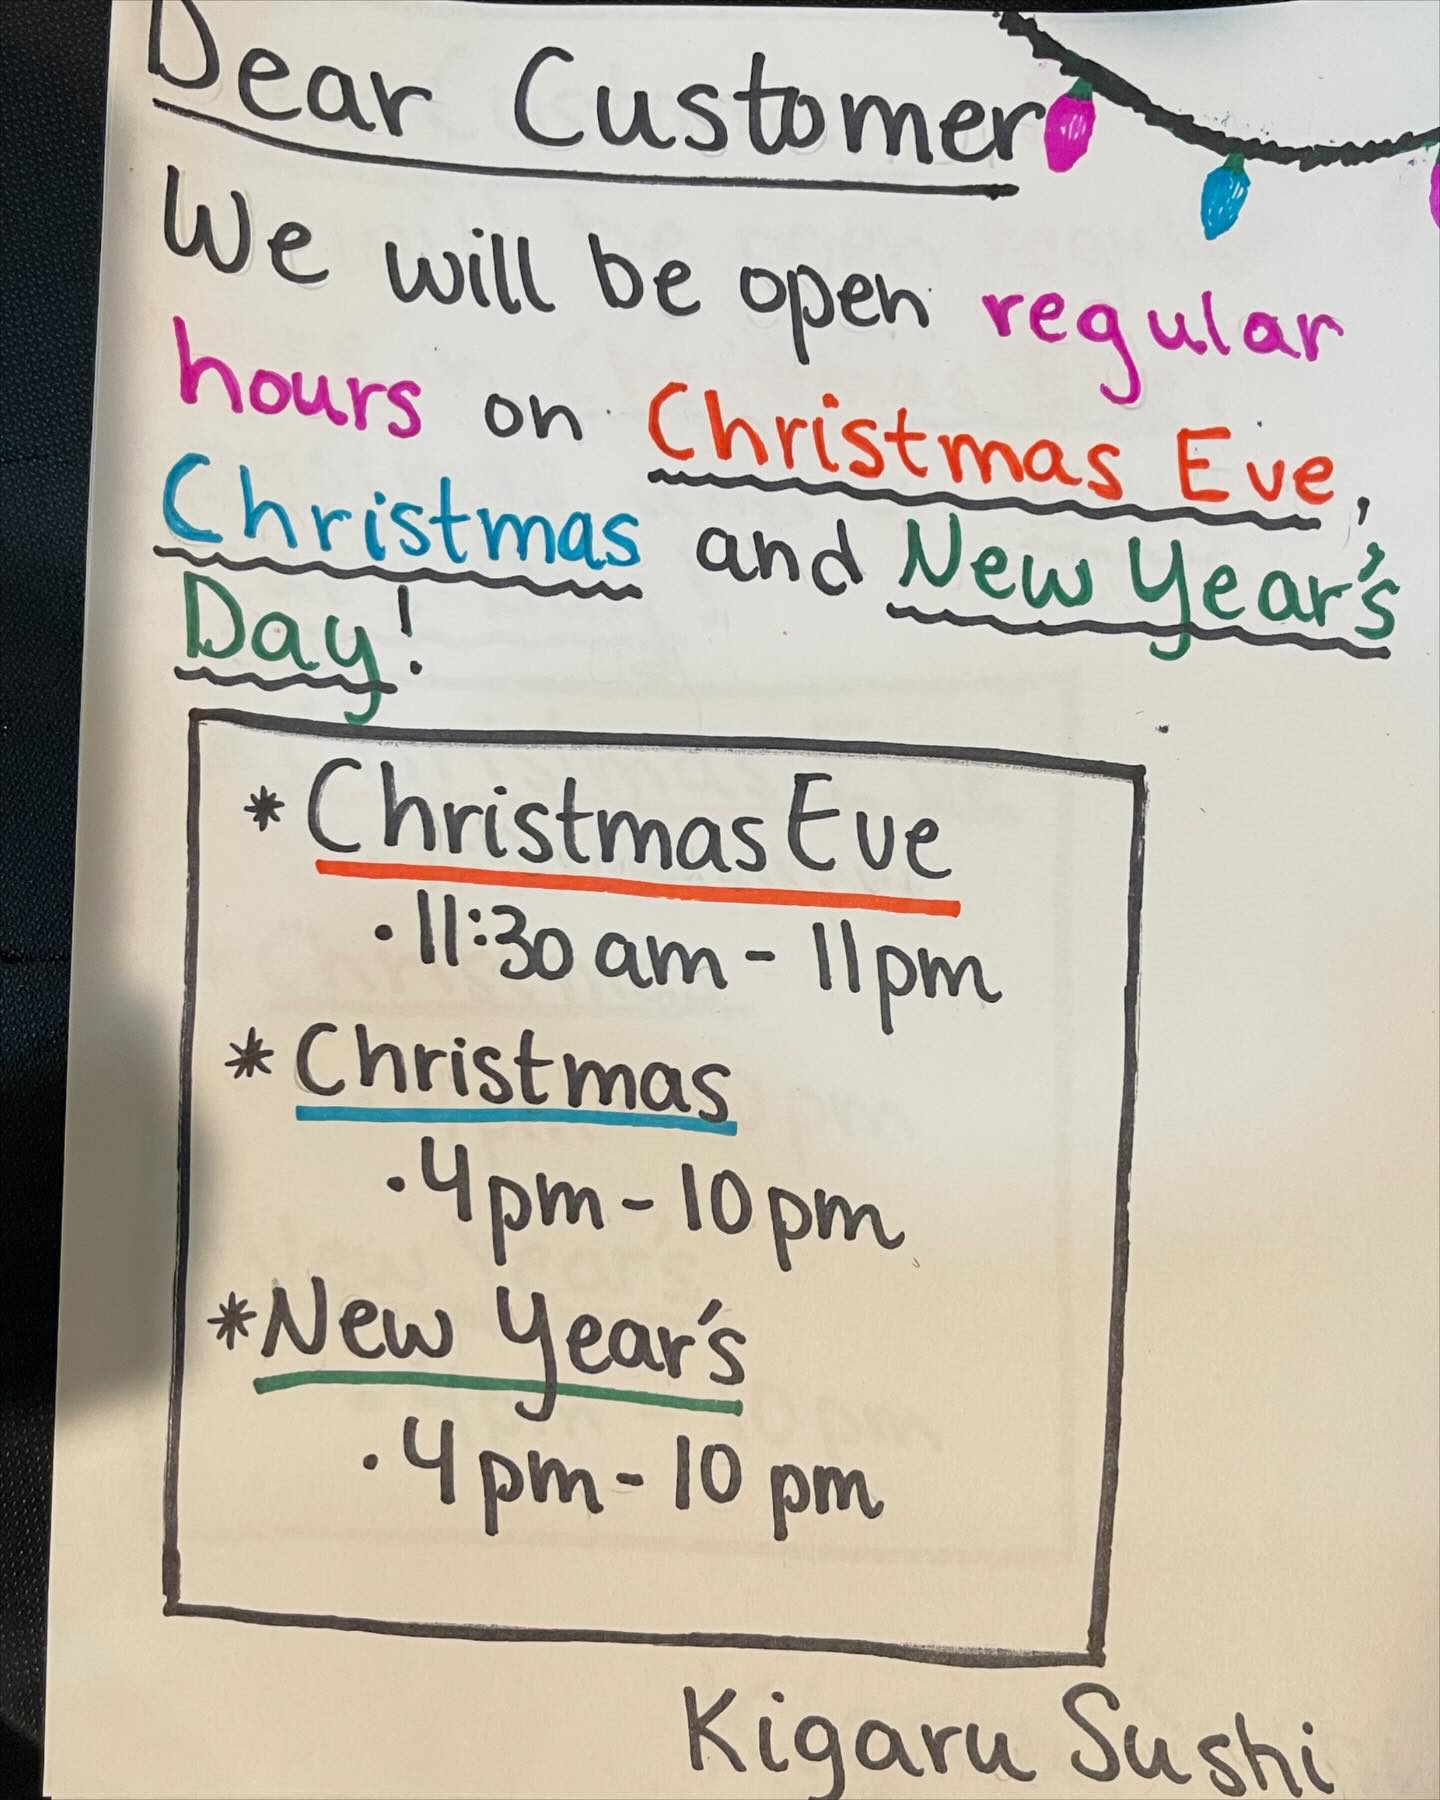 Dear Customer
We will be open regular
hours on Christmas Eve,
Christmas and New Year's
Day!
* Christmas Eve
• 11:30 am - 11pm
* Christmas
• 4pm - 10pm
* New Year's
• 4pm - 10 pm
Kigaru Sushi